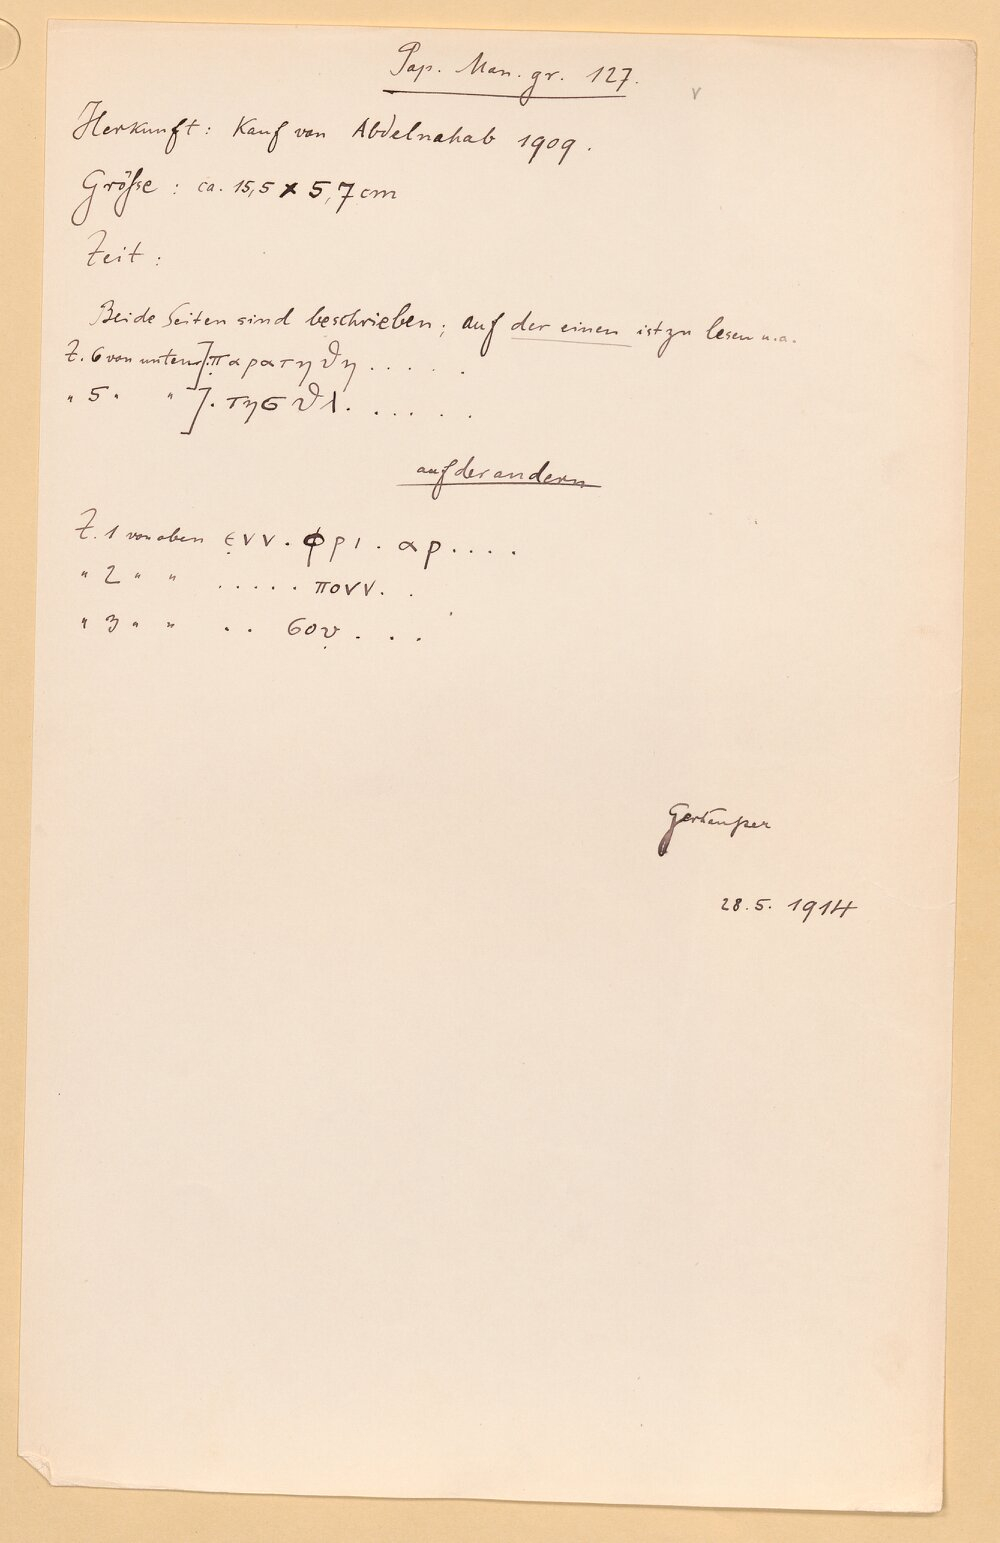 Pap. Mon. gr. 127.
Herkunft: Kauf von Abdelwahab 1909.
Größe: ca. 15,5 x 5,7 cm
Zeit:
Beide Seiten sind beschrieben; auf der einen ist zu lesen u.a.
Z. 6 von unten ].παρατηϑη . . . . .
" 5 " " ]. τησϑλ. . . . . .
auf der andern
Z. 1 von oben ε̣νν . φρι . αρ . . . .
" 2 " " . . . . . πονν. .
" 3 " " . . σου̣ . . .
Gerhäußer
28. 5. 1914